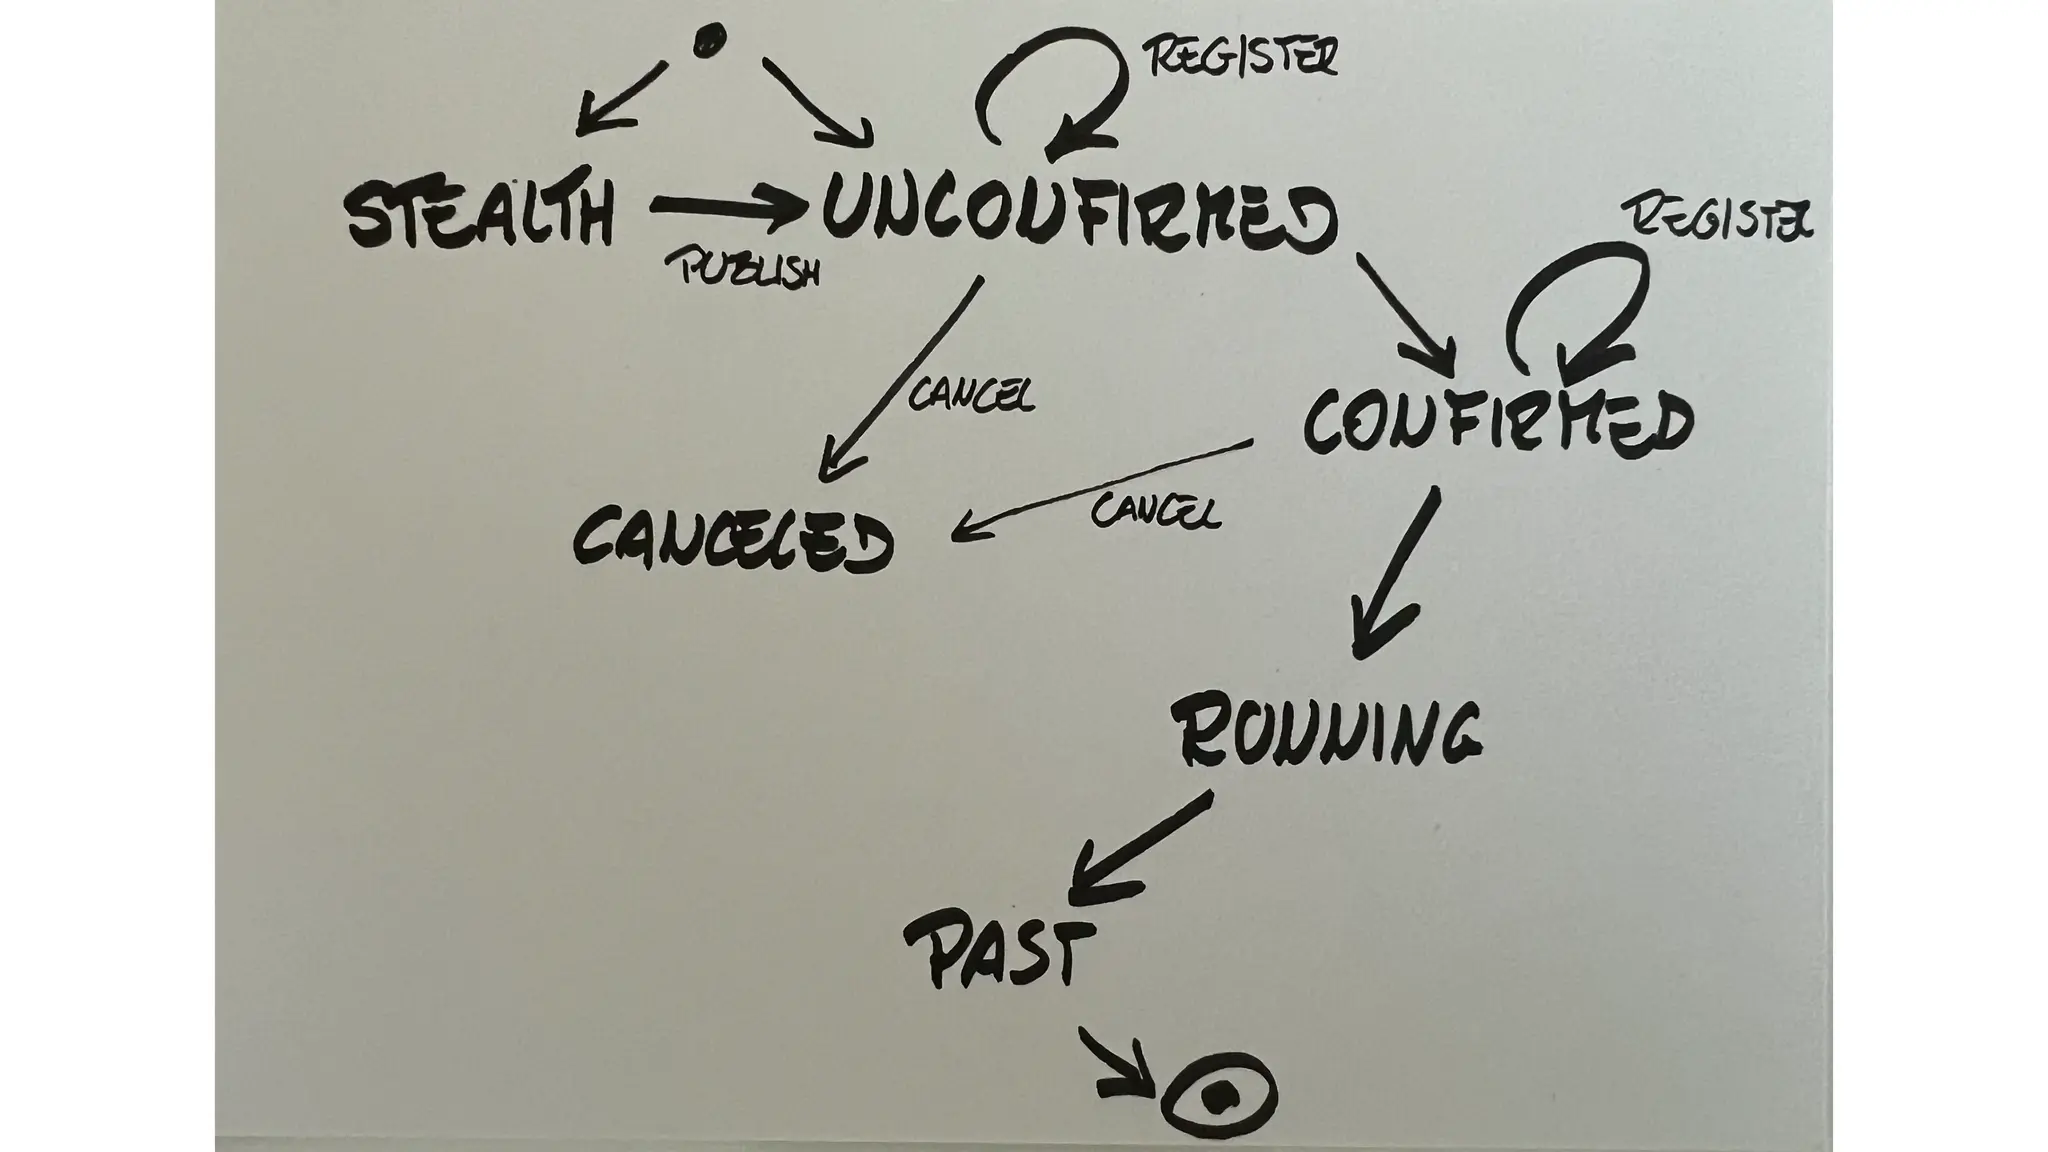 REGISTER
STEALTH
UNCONFIRMED
PUBLISH
REGISTER
CANCEL
CONFIRMED
CANCEL
CANCELED
RUNNING
PAST